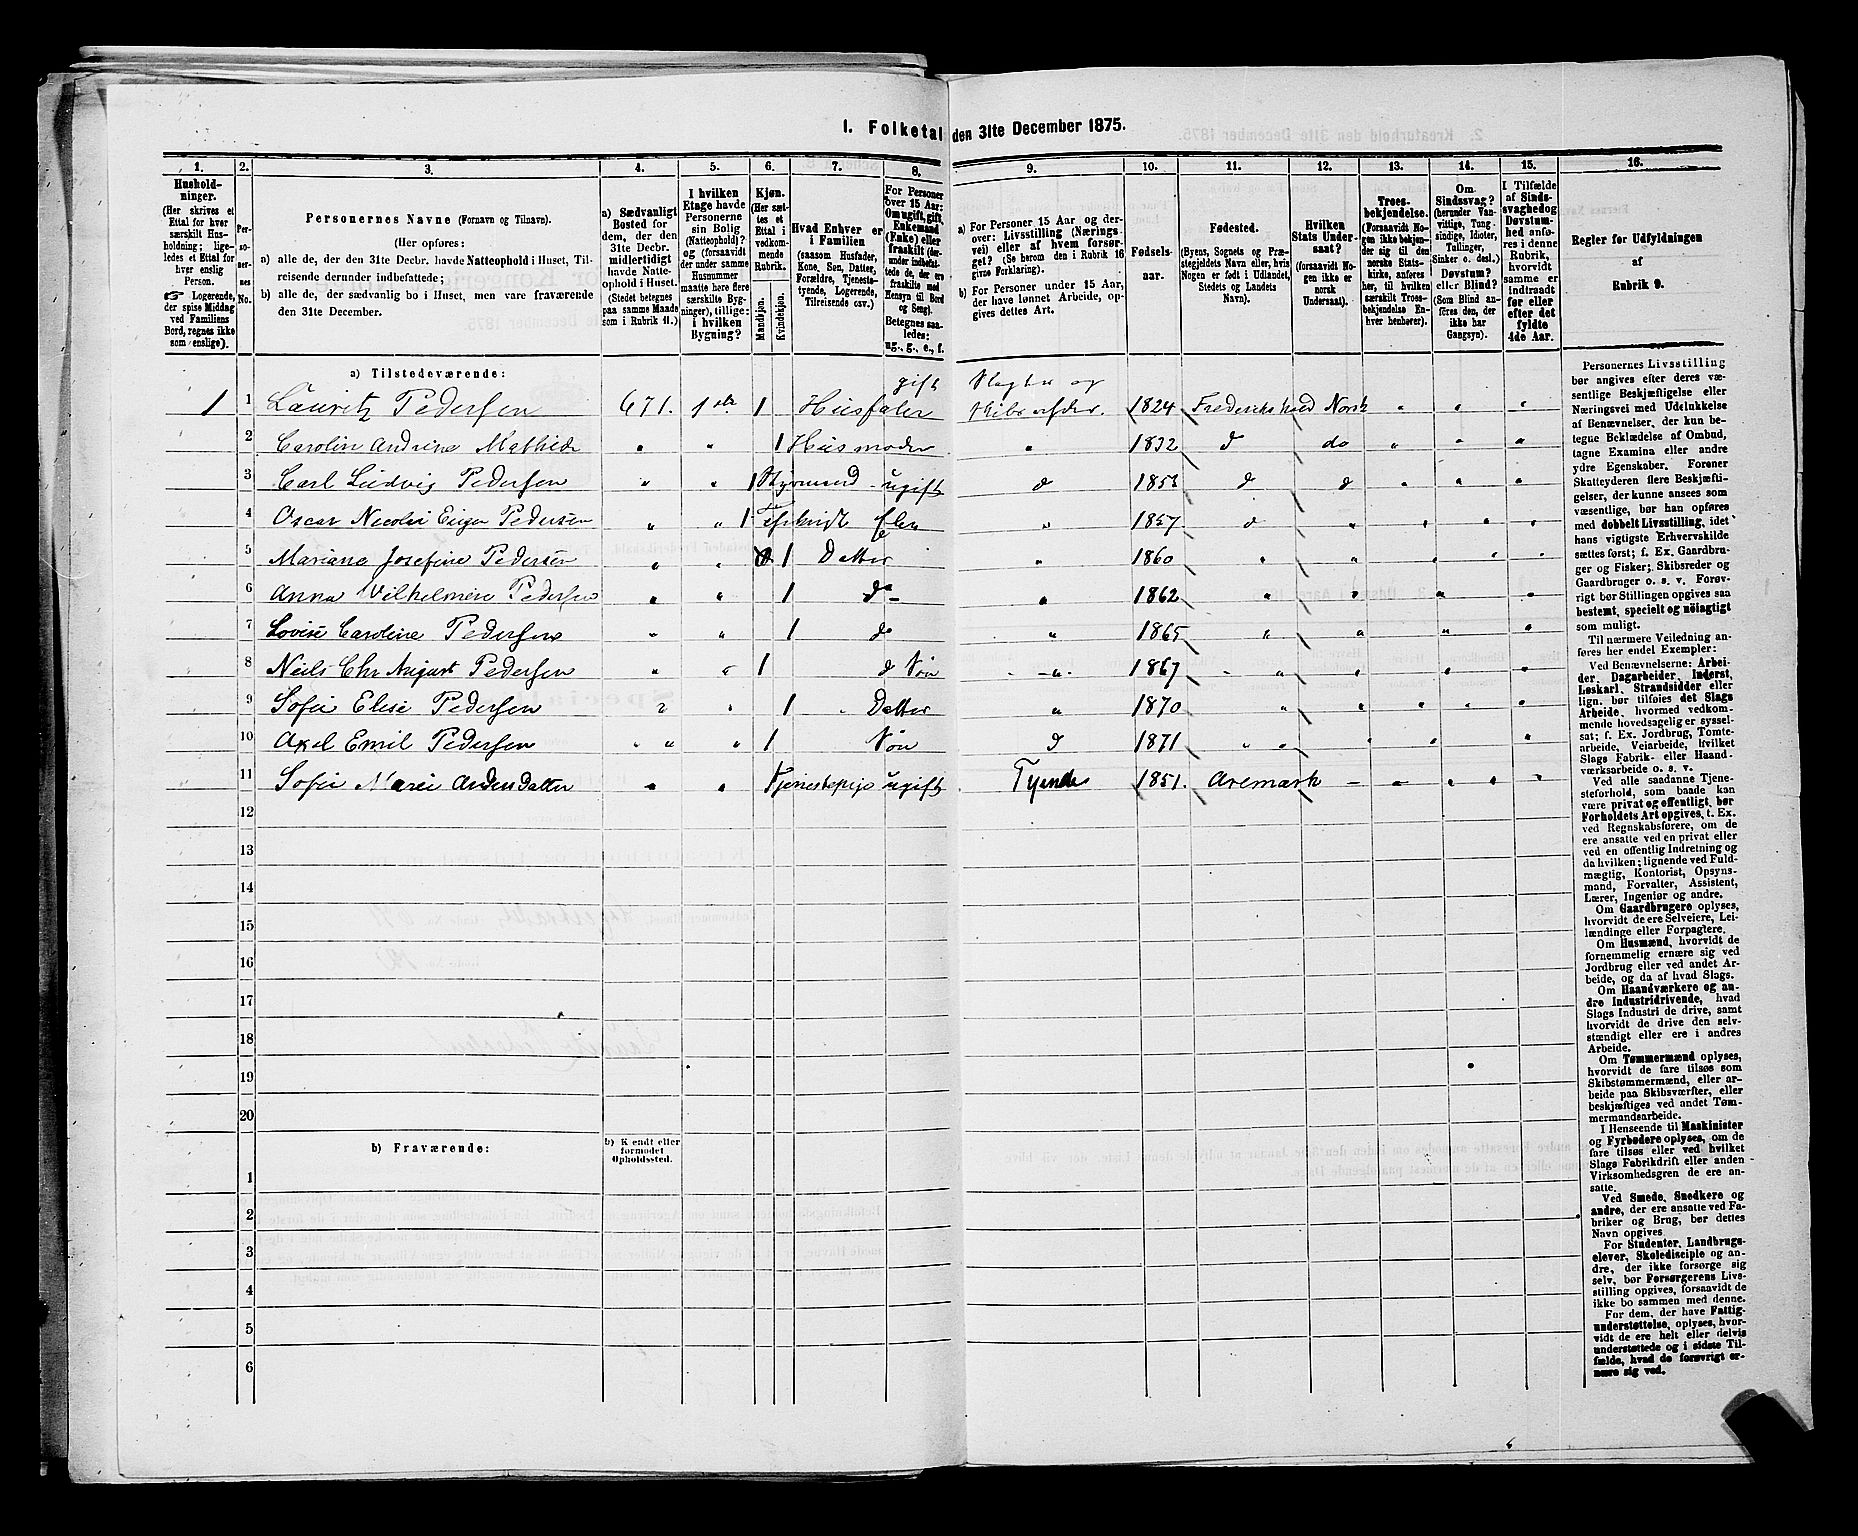 I. Folketal den 31te December 1875.
1. 2. 3. 4. 5. 6. 7. 8. 9. 10. 11. 12. 13. 14. 15. 16.
Husholdninger.
(Her skrives et
Ettal for hver
særskilt Husholdning;
ligeledes et Ettal for
hver enslig
Person.
☞ Logerende,
der spise Middag
ved Familiens
Bord, regnes ikke
som enslige).
Personernes No.
Personernes Navne (Fornavn og Tilnavn).
(Her opføres:
a) alle de, der den 31te Decbr. havde Natteophold i Huset, Tilreisende derunder indbefattede;
b) alle de, der sædvanlig bo i Huset, men vare fraværende
den 31te December.
a) Sædvanligt
Bosted for
dem, der den
31te Decbr.
midlertidigt
havde Natteophold i Huset.
(Stedet betegnes
paa samme Maade
som i Rubrik 11.)
I hvilken
Etage havde
Personerne
sin Bolig
(Natteophold)?
og (forsaavidt
der under samme
Husnummer
maatte høre flere
særskilte Bygninger), tillige:
i hvilken
Bygning?
Kjøn.
(Her sættes et
Ettal i
vedkommende
Rubrik.
Mandkjøn.
Kvindekjøn.
Hvad Enhver er
i Familien
(saasom Husfader,
Kone, Søn, Datter,
Forældre, Tjenestetyende, Logerende,
Tilreisende osv.)
For Personer
over 15 Aar:
Om ugift, gift,
Enkemand
(Enke) eller
fraskilt (derunder indbefattede de, der ere
fraskilte med
Hensyn til Bord
og Seng).
Betegnes saaledes:
ug., g., e., f.
a) For Personer 15 Aar og derover: Livsstilling (Næringsvei) eller af hvem forsørget? (Se herom den i Rubrik 16
givne Forklaring).
b) For Personer under 15 Aar,
der have lønnet Arbeide, opgives dettes Art.
Fødselsaar.
Fødested.
(Byens, Sognets og Præstegjeldets Navn eller, hvis
Nogen er født i Udlandet,
Stedets og Landets
Navn).
Hvilken
Stats Undersaat?
(forsaavidt Nogen ikke er
norsk
Undersaat).
Troesbekjendelse.
(Forsaavidt Nogen ikke bekjender sig til den
norske Statskirke, anføres
her, til hvilken
særskilt Troesbekjendelse Enhver henhører).
Om
Sindssvag?
(herunder Vanvittige, Tungsindige, Idioter,
Tullinger,
Sinker o. desl.)
Døvstum?
eller Blind?
(Som Blind anføres den, der
ikke har
Gangsyn).
I Tilfælde
af Sindssvaghed og
Døvstumhed anføres i denne
Rubrik,
hvorvidt
samme er
indtraadt
før eller
efter det
fyldte
4de Aar.
Regler for Udfyldningen
af
Rubrik 9.
a) Tilstedeværende:
1 1 Lauritz Pedersen 671. 1ste 1 Husfader gift Slagter og 1824 Frederikshald Norsk " " "
2 Carolin Andrine Mathide " " 1 Husmoder " 1832 d do " " "
3 Carl Ludvig Pedersen " " 1 Styrmand ugift d 1853 d d " " "
4 Oscar Nicolai Pedersen " " 1 " 1857 d " " " "
5 Mariane Josefine Pedersen " " 1 Datter " 1860 " " " " "
6 Anna Vilhelmine Pedersen " " 1 do " 1862 " " " "
7 Lovise Caroline Pedersen " " 1 do " 1865 " " " "
8 Neils Chr August Pedersen " " 1 d Søn " 1867 " " " "
9 Sofie Elise Pedersen " " 1 " Datter " 1870 " " " " "
10 Axel Emil Pedersen " " " 1 Søn d 1871 " " " " "
11 Sofie Marei AndersDatter " " Tjenestepige ugift Tyende 1851. Aremark - - " " "
12
13
14
15
16
17
18
19
20
b) Fraværende:
b) Kjendt eller
formodet
Opholdssted.
1
2
3
4
5
6
Personernes Livsstilling
bør angives efter deres væsentlige Beskjæftigelse eller
Næringsvei med Udelukkelse
af Benævnelser, der kun betegne Beklædelse af Ombud,
tagne Examina eller andre
ydre Egenskaber. Forener
Skatteyderen flere Beskjæftigelser, der kunne ansees som
væsentlige, bør han opføres
med dobbelt Livsstilling, idet
hans vigtigste Erhvervskilde
sættes først; f. Ex. Gaardbruger og Fisker; Skibsreder og
Gaardbruger o. s. v. Forøvrigt bør Stillingen opgives saa
bestemt, specielt og nöiagtigt
som muligt.
Til nærmere Veiledning anføres her endel Exempler:
Ved Benævnelserne: Arbeider, Dagarbeider, Inderst,
Løskarl, Strandsidder eller
lign. bør tilføies det Slags
Arbeide, hvormed vedkommende hovedsagelig er sysselsat; f. Ex. Jordbrug, Tomtearbeide, Veiarbeide, hvilket
Slags Fabrik- eller Haandværksarbeide o. s. v.
Ved alle saadanne Tjenesteforhold, som baade kan
være privat og offentligt, bør
Forholdets Art opgives, t. Ex.
ved Regnskabsførere, om de
ere ansatte ved en privat eller
ved en offentlig Indretning og
da hvilken; lignende ved Fuldmægtig, Kontorist, Opsynsmand, Forvalter, Assistent,
Lærer, Ingeniør og andre.
Om Gaardbrugere oplyses,
hvorvidt de ere Selveiere, Leilændinge eller Forpagtere.
Om Husmænd, hvorvidt de
fornemmelig ernære sig ved
Jordbrug eller ved andet Arbeide, og da af hvad Slags.
Om Haandværkere og andre Industridrivende, hvad
Slags Industri de drive, samt
hvorvidt de drive den selvstændigt eller ere i andres
Arbeide.
Om Tømmermænd oplyses,
hvorvidt de fare tilsøs som
Skibstømmermænd, eller arbeide paa Skibsværfter, eller
beskjæftiges ved andet Tømmermandsarbeide.
I Henseende til Maskinister
og Fyrbødere oplyses, om de
fare tilsøs eller ved hvilket
Slags Fabrikdrift eller anden
Virksomhedsgren de ere ansatte.
Ved Smede, Snedkere og
andre, der ere ansatte ved Fabriker og Brug, bør dettes
Navn opgives
For Studenter, Landbrugselever, Skoledisciple og andre, der ikke forsørge sig
selv, bør Forsørgerens Livsstilling opgives, forsaavidt de
ikke bo sammen med denne.
For dem, der have Fattigunderstøttelse, oplyses, hvorvidt de ere helt eller delvis
understøttede og i sidste Tilfælde, hvad de forøvrigt ernære sig ved.